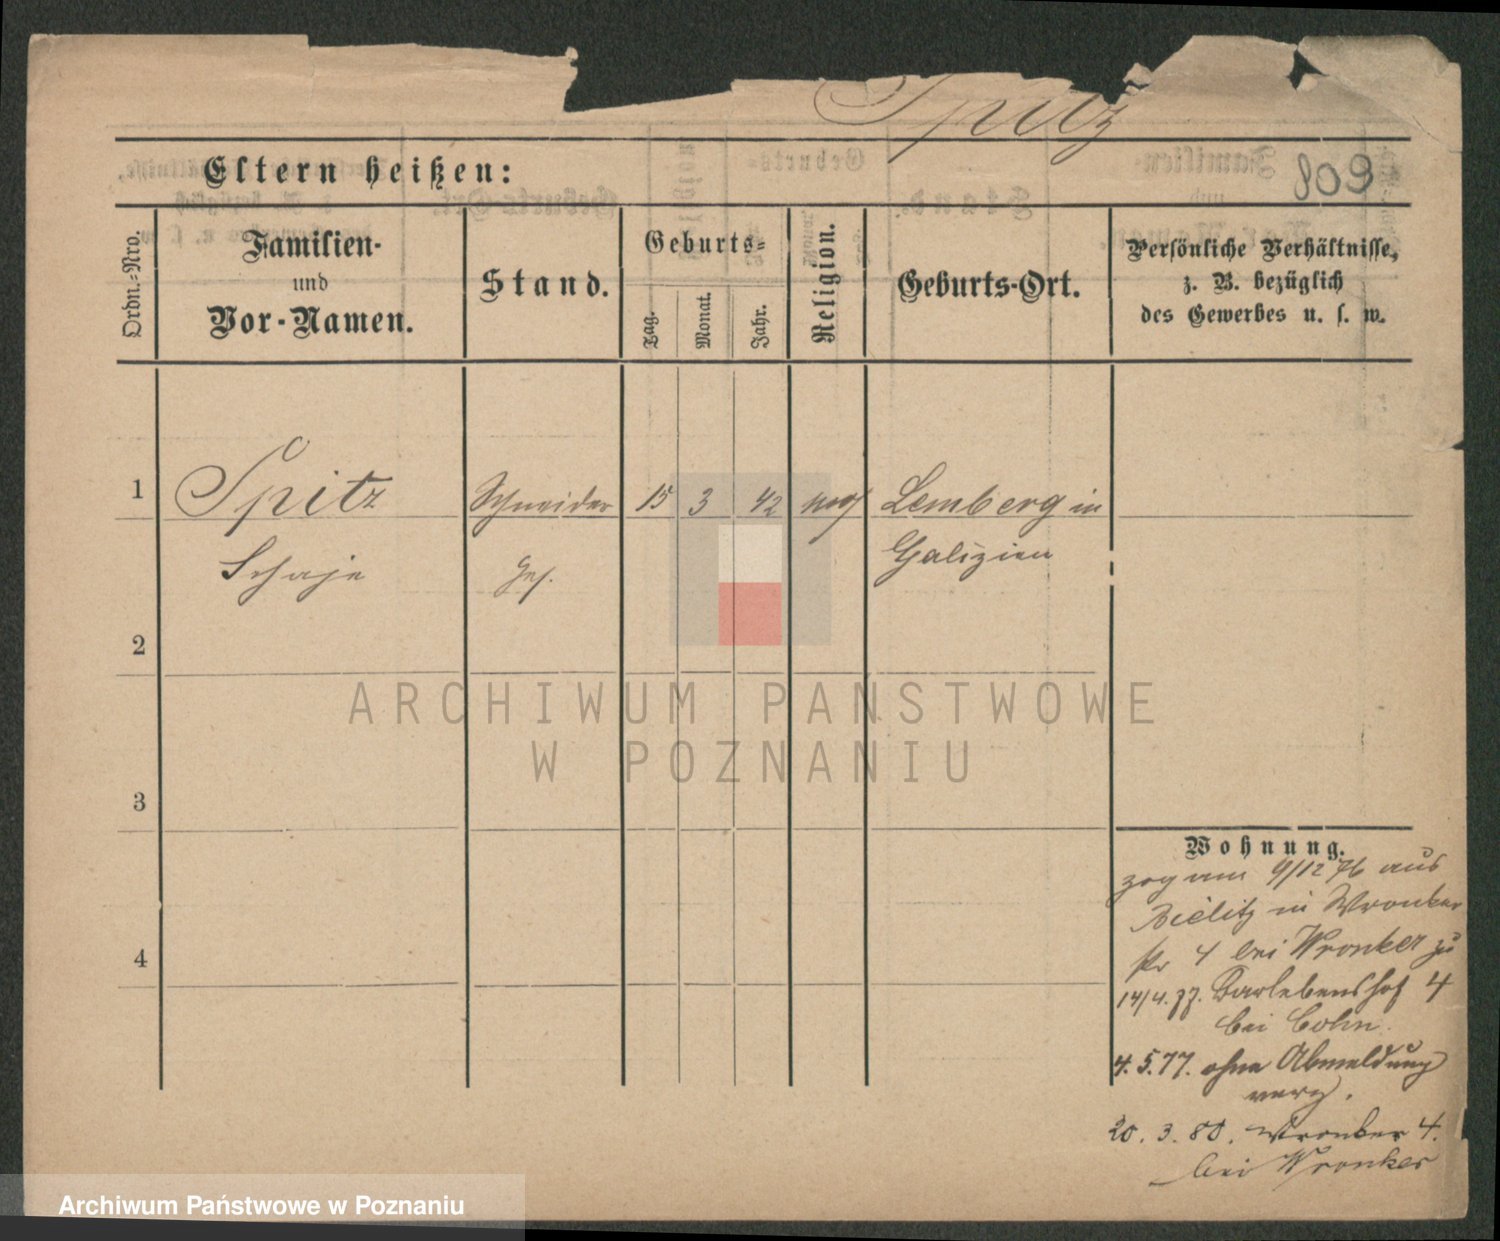 Spitz
Eltern heißen:
809
Ordn.-Nro.
Familien-
und
Vor-Namen.
Stand.
Geburts-
Tag.
Monat.
Jahr.
Religion.
Geburts-Ort.
Persönliche Verhältnisse,
z. B. bezüglich
des Gewerbes u. s. w.
1 Spitz Schneider 15 3 42 mos Lemberg in
Schaje Ges. Galizien
2
3
4
ARCHIWUM PANSTWOWE
W POZNANIU
Wohnung.
zog am 9/12 76 aus
Bielitz in Wronker
str 4 bei Wronker zu
14/4.77. Barlebenshof 4
bei Cohn.
4.5.77. ohne Abmeldung
verz.
20.3.80. Wronker 4.
bei Wronker
Archiwum Państwowe w Poznaniu